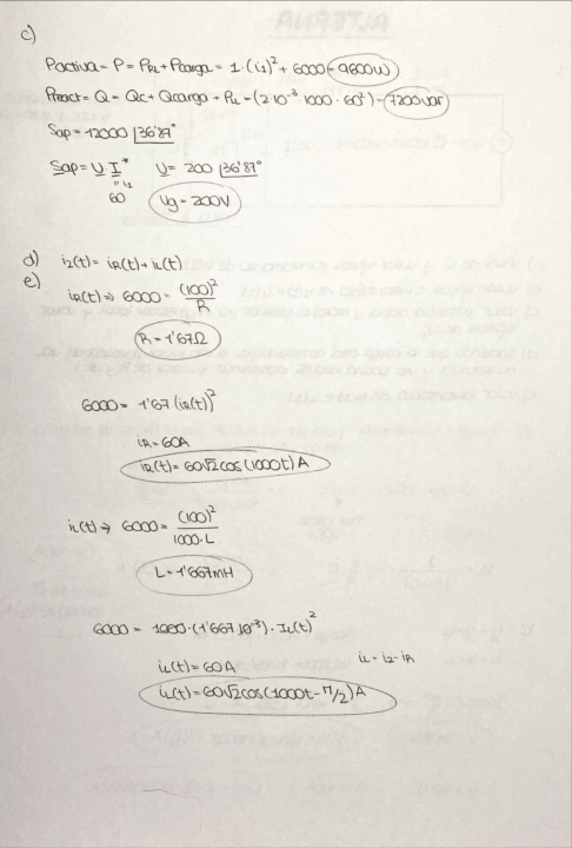 c)
Pactiva = P = PR1 + Pcarga = 1·(i1)² + 6000 = 9600W
Preact = Q = Qc + Qcarga + PL = (2·10⁻³·1000·60²) = 7200var
Sap = 12000 |36'87°
Sap = U·I* U = 200 |36'87°
" i1
60 Ug = 200V
d) i2(t) = iR(t) + iL(t)
e)
iR(t) ⇒ 6000 = (100)² / R
R = 1'67Ω
6000 = 1'67 (iR(t))²
iR = 60A
iR(t) = 60√2cos(1000t) A
iL(t) ⇒ 6000 = (100)² / 1000·L
L = 1'667mH
6000 = 1000·(1'667 10⁻³)·IL(t)²
iL(t) = 60A iL = i2 - iR
iL(t) = 60√2cos(1000t - π/2) A